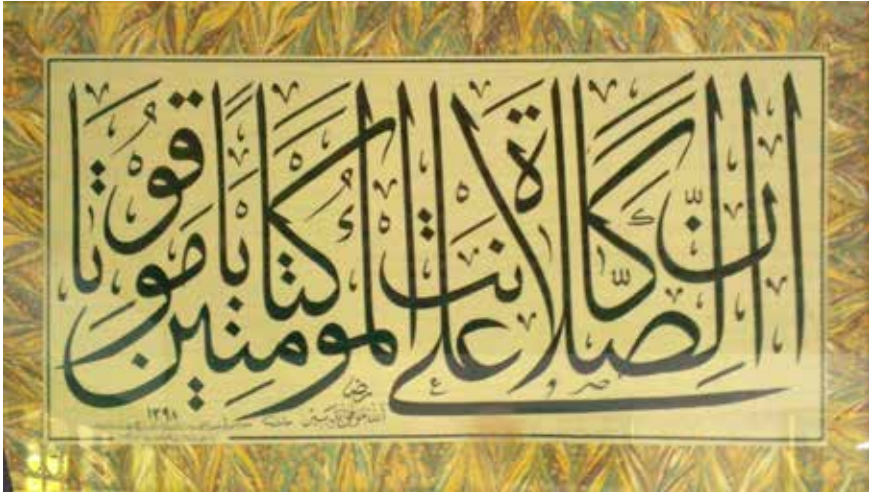 ان الصلاة كانت على المؤمنين كتابا موقوتا
١٣٩٨